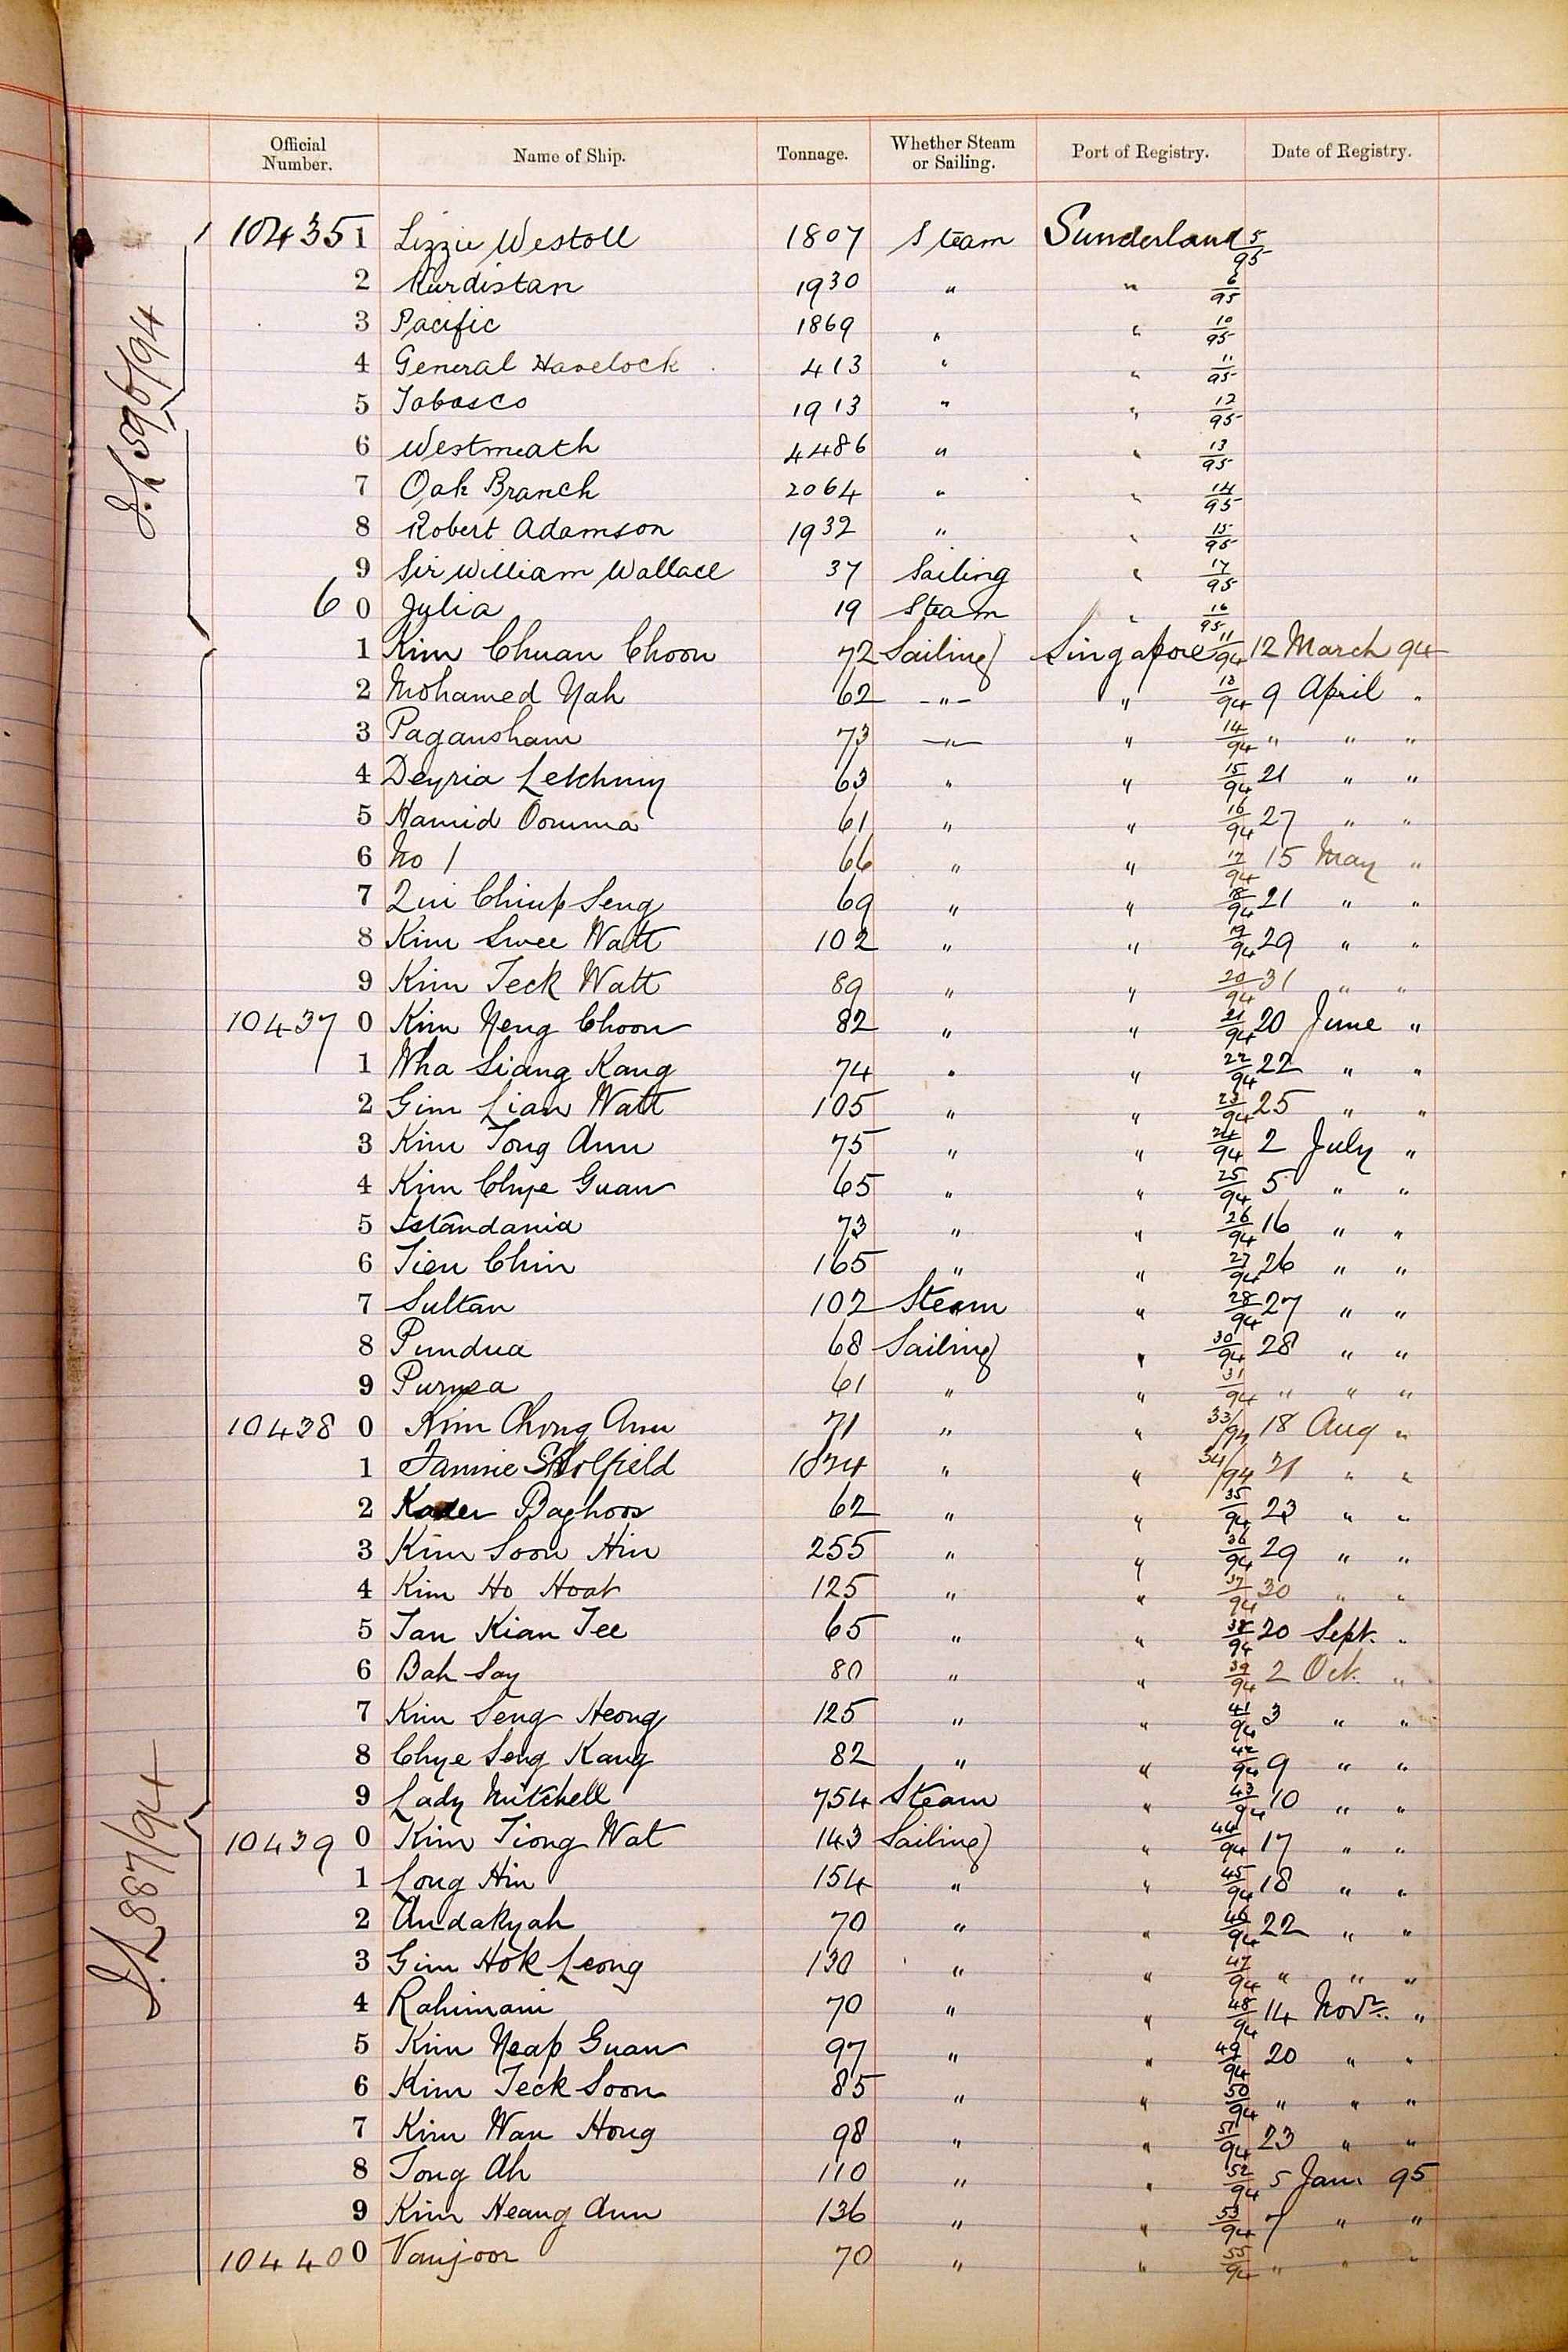 Official Number. Name of Ship. Tonnage. Whether Steam or Sailing. Port of Registry. Date of Registry.
104351 Lizzie Westoll 1807 Steam Sunderland 5/95
2 Kurdistan 1930 " " 6/95
3 Pacific 1869 " " 10/95
4 General Havelock 413 " " 11/95
5 Tabasco 1913 " " 12/95
6 Westmeath 4486 " " 13/95
7 Oak Branch 2064 " " 14/95
8 Robert Adamson 1932 " " 15/95
9 Sir William Wallace 37 Sailing " 17/95
6 0 Julia 19 Steam " 16/95
1 Kim Chuan Choon 72 Sailing Singapore 11/94 12 March 94
2 Mohamed Yah 62 -"- " 13/94 9 April "
3 Pagansham 73 -"- " 14/94 " " "
4 Deyria Letchmy 63 " " 15/94 21 " "
5 Hamid Oomma 61 " " 16/94 27 " "
6 No 1 66 " " 17/94 15 May "
7 Lui Chiup Seng 69 " " 18/94 21 " "
8 Kim Swee Watt 102 " " 19/94 29 " "
9 Kim Teck Watt 89 " " 20/94 31 " "
10437 0 Kim Neng Choon 82 " " 21/94 20 June "
1 Wha Siang Kang 74 " " 22/94 22 " "
2 Gim Lian Watt 105 " " 23/94 25 " "
3 Kim Tong Ann 75 " " 24/94 2 July "
4 Kim Chye Guan 65 " " 25/94 5 " "
5 Istandania 73 " " 26/94 16 " "
6 Tien Chin 165 " " 27/94 26 " "
7 Sultan 102 Steam " 28/94 27 " "
8 Pundua 68 Sailing " 30/94 28 " "
9 Purnea 61 " " 31/94 " " "
10438 0 Kim Chong Ann 71 " " 33/94 18 Aug "
1 Fannie 1024 " " 34/94 21 " "
2 Kader Baghoos 62 " " 35/94 23 " "
3 Kim Soon Hin 255 " " 36/94 29 " "
4 Kim Ho Hoat 125 " " 37/94 30 " "
5 Tan Kian Tee 65 " " 38/94 20 Sept. "
6 Bah Say 80 " " 39/94 2 Oct. "
7 Kim Seng Heong 125 " " 41/94 3 " "
8 Chye Seng Kang 82 " " 42/94 9 " "
9 Lady Mitchell 754 Steam " 43/94 10 " "
10439 0 Kim Tiong Wat 143 Sailing " 44/94 17 " "
1 Long Hin 154 " " 45/94 18 " "
2 Andakyah 70 " " 46/94 22 " "
3 Gim Hok Leong 130 " " 47/94 " " "
4 Rahimani 70 " " 48/94 14 Novr. "
5 Kim Yeap Guan 97 " " 49/94 20 " "
6 Kim Teck Soon 85 " " 50/94 " " "
7 Kim Wan Hong 98 " " 51/94 23 " "
8 Tong Ah 110 " " 52/94 5 Jan. 95
9 Kim Heang Ann 136 " " 53/94 7 " "
10440 0 Vanjoor 70 " " 55/94 " " "
596/94
887/94